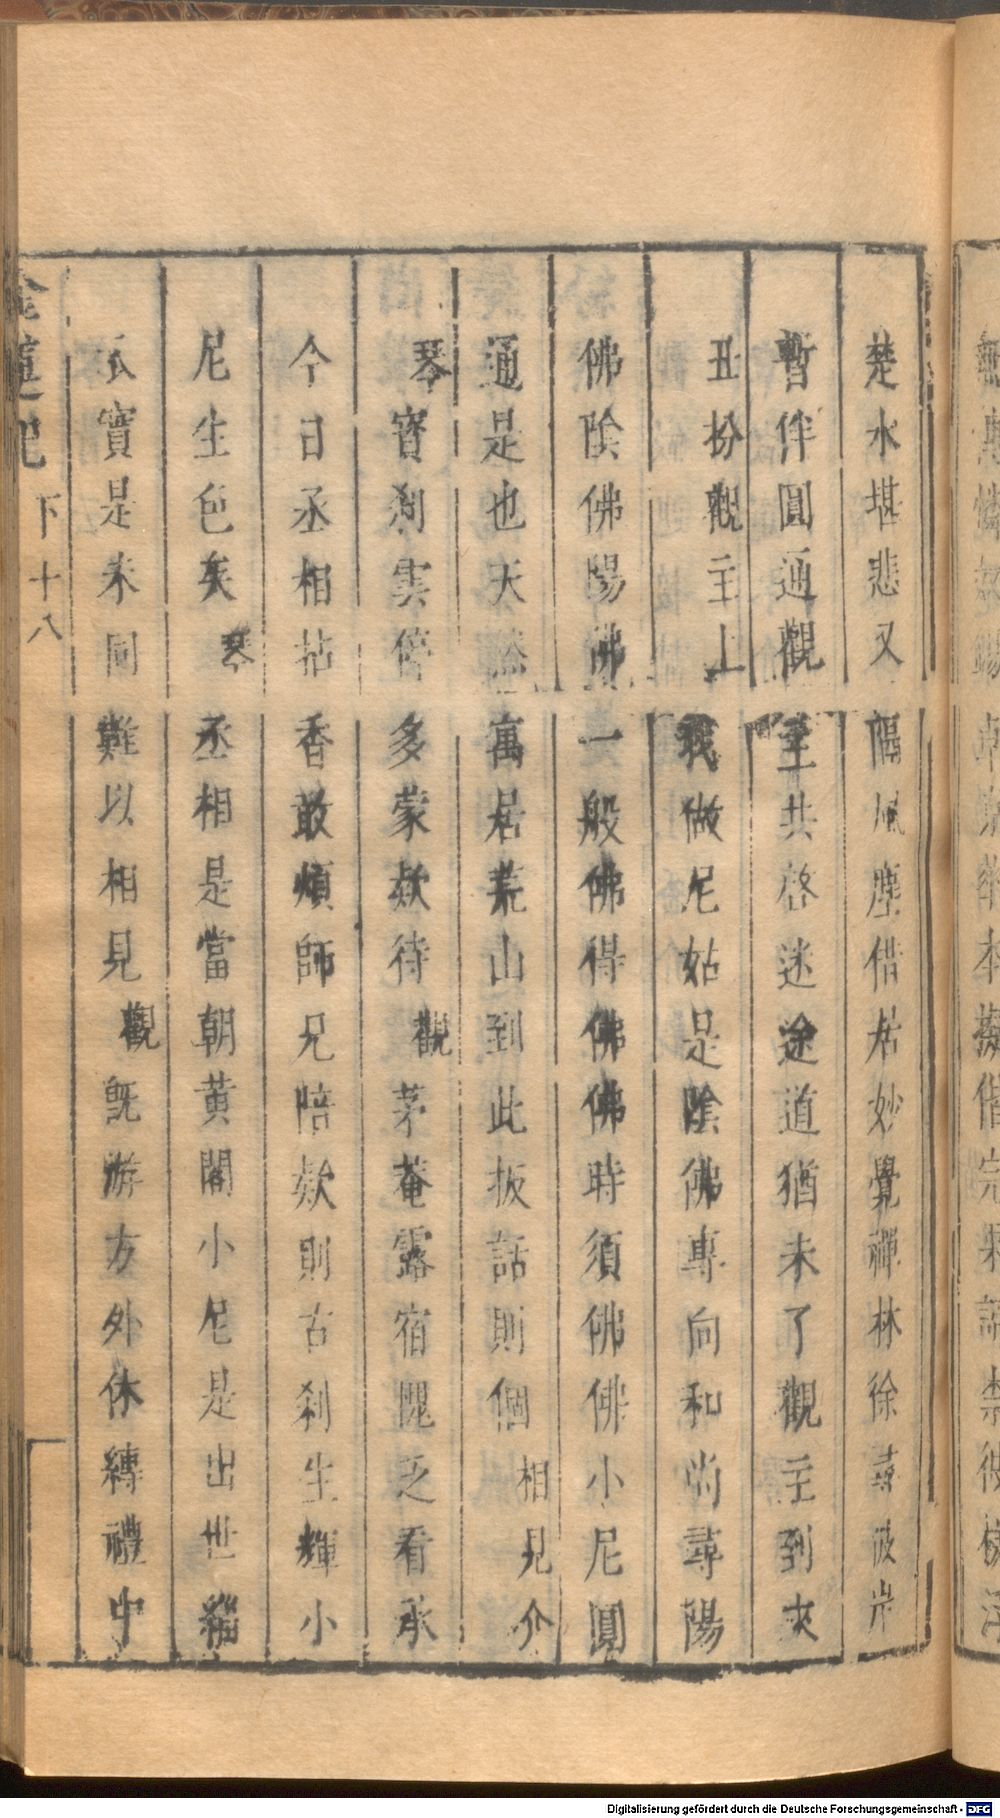 楚水堪悲又隔風塵借居妙覺禪林徐尋彼岸
暫伴圓通觀主共啓迷途道猶未了觀主到來
丑扮觀主上我做尼姑是陰佛專向和尚尋陽
佛陰佛陽佛一般佛得佛佛時須佛佛小尼圓
通是也天寓居荒山到此扳話則個相見介
琴寶剎雲停多蒙欵待觀茅菴露宿愧乏看承
今日丞相拈香敢煩師兄陪欵則古剎生輝小
尼生色矣琴丞相是當朝黃閣小尼是出世緇
衣實是未同難以相見觀既游方外休縛禮中
下十八
Digitalisierung gefördert durch die Deutsche Forschungsgemeinschaft - DFG